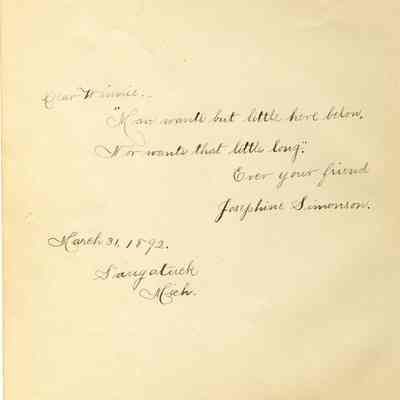 Dear Winnie.
"Man wants but little here below,
Nor wants that little long".
Ever your friend
Josephine Simonson.
March 31, 1892.
Saugatuck
Mich.